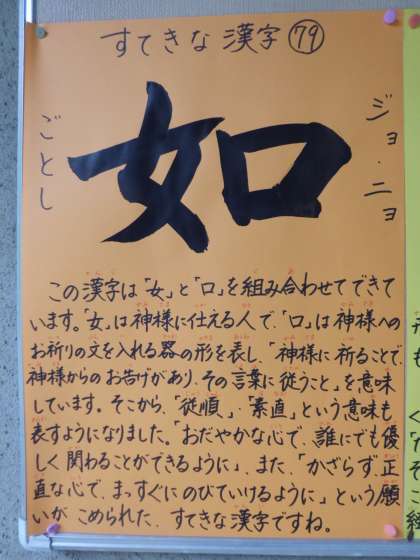 すてきな漢字 79
ジョ・ニョ
如
ごとし
この漢字は「女」と「口」を組み合わせてできて
います。「女」は神様に仕える人で、「口」は神様への
お祈りの文を入れる器の形を表し、「神様に祈ることで、
神様からのお告げがあり、その言葉に従うこと」を意味
しています。そこから、「従順」、「素直」という意味も
表すようになりました。「おだやかな心で、誰にでも優
しく関わることができるように」、また、「かざらず、正
直な心で、まっすぐにのびていけるように」という願
いがこめられた、すてきな漢字ですね。